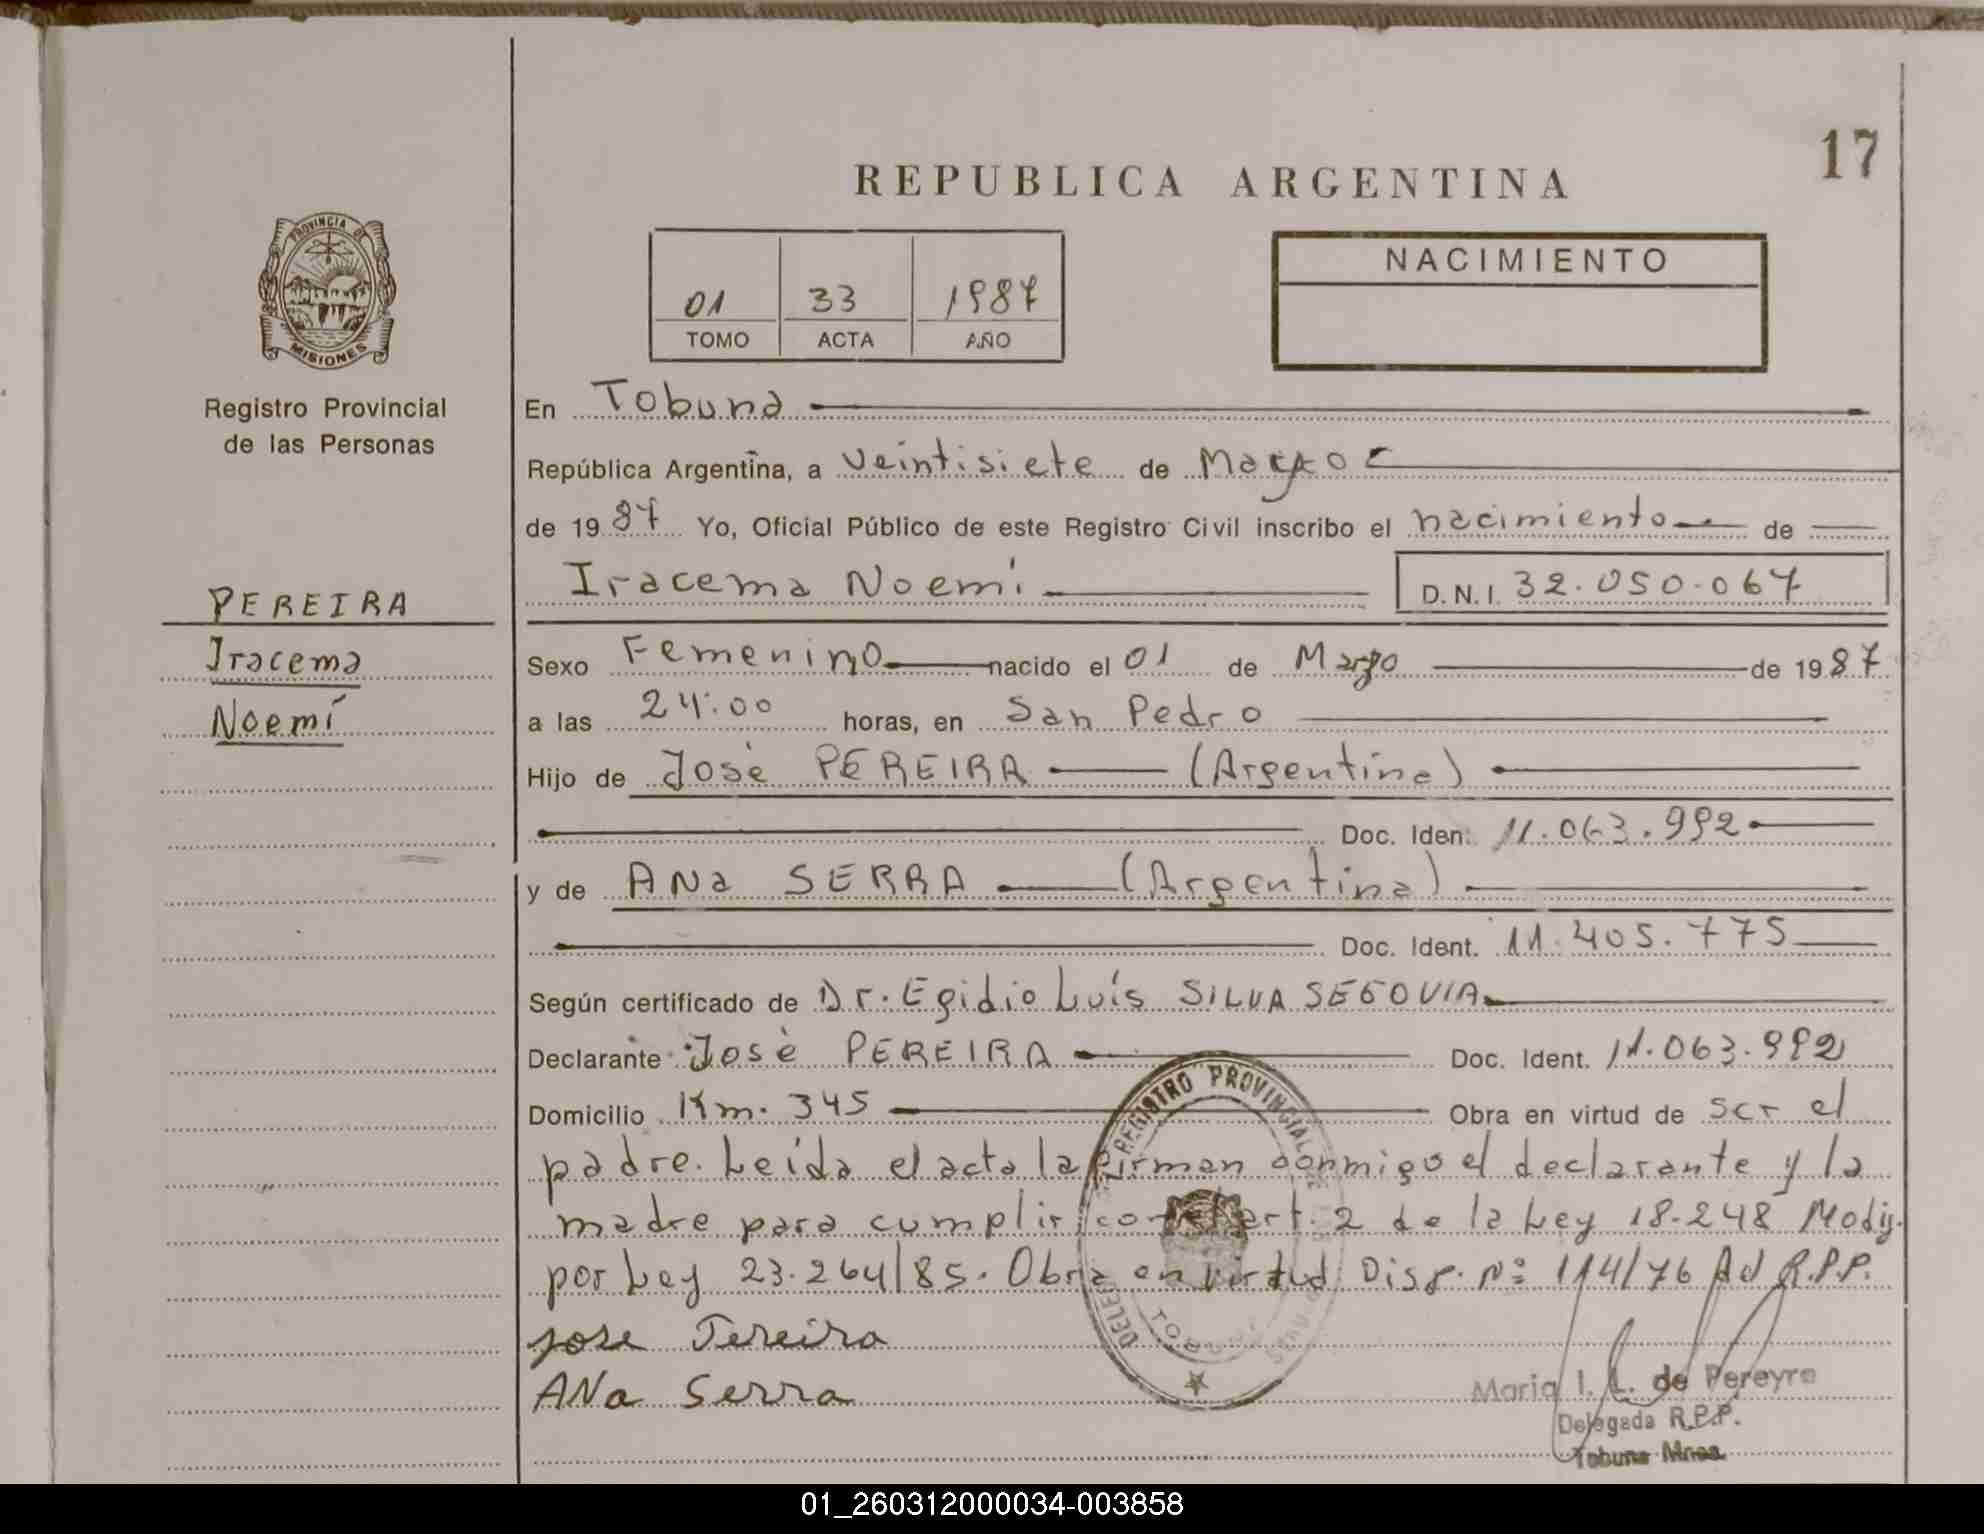 17
REPUBLICA ARGENTINA
PROVINCIA DE
MISIONES
Registro Provincial
de las Personas
PEREIRA
Iracema
Noemí
01 33 1987
TOMO ACTA AÑO
NACIMIENTO
En Tobuna
República Argentina, a veintisiete de Marzo
de 1987 Yo, Oficial Público de este Registro Civil inscribo el nacimiento de
Iracema Noemí D.N.I. 32.050.067
Sexo Femenino nacido el 01 de Marzo de 1987
a las 24:00 horas, en San Pedro
Hijo de José PEREIRA (Argentina)
Doc. Iden. 11.063.992
y de ANa SERRA (Argentina)
Doc. Ident. 11.405.775
Según certificado de Dr. Egidio Luís SILVA SEGOVIA
Declarante José PEREIRA Doc. Ident. 11.063.992
Domicilio Km. 345 Obra en virtud de ser el
padre. Leída el acta la firman conmigo el declarante y la
madre para cumplir con el art. 2 de la Ley 18.248 Modif.
por Ley 23.264/85. Obra en virtud Disp. Nº 114/76 Ad R.P.P.
jose Pereira
ANa Serra
REGISTRO PROVINCIAL
TOBUNA
Maria I. L. de Pereyra
Delegada R.P.P.
Tobuna Mnes.
01_260312000034-003858